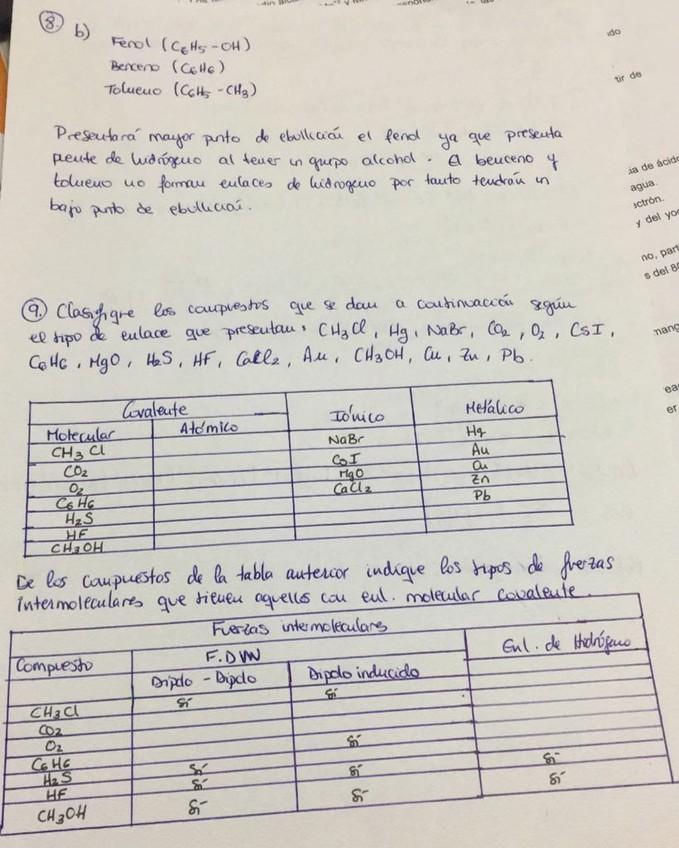 8. b)
Fenol (C6H5-OH)
Benceno (C6H6)
Tolueno (C6H5-CH3)
Presentará mayor punto de ebullición el fenol ya que presenta
puente de hidrógeno al tener un grupo alcohol. El benceno y
tolueno no forman enlaces de hidrogeno por tanto tendrán un
bajo punto de ebullición.
9. Clasifique los compuestos que se dan a continuación según
el tipo de enlace que presentan: CH3Cl, Hg, NaBr, CO2, O2, CsI,
C6H6, MgO, H2S, HF, CaCl2, Au, CH3OH, Cu, Zn, Pb.
Covalente Iónico Metálico
Molecular Atómico
CH3Cl NaBr Hg
CO2 CsI Au
O2 MgO Cu
C6H6 CaCl2 Zn
H2S Pb
HF
CH3OH
De los compuestos de la tabla anterior indique los tipos de fuerzas
intermoleculares que tienen aquellos con enl. molecular covalente.
Fuerzas intermoleculares
Compuesto F.DVW Enl. de Hidrógeno
Dipolo - Dipolo Dipolo inducido
CH3Cl Sí Sí
CO2
O2 Sí
C6H6 Sí Sí
H2S Sí Sí Sí
HF Sí
CH3OH Sí
ido
tir de
ia de ácido
agua.
ectrón.
y del yo
no, part
s del 80
mang
ea
er